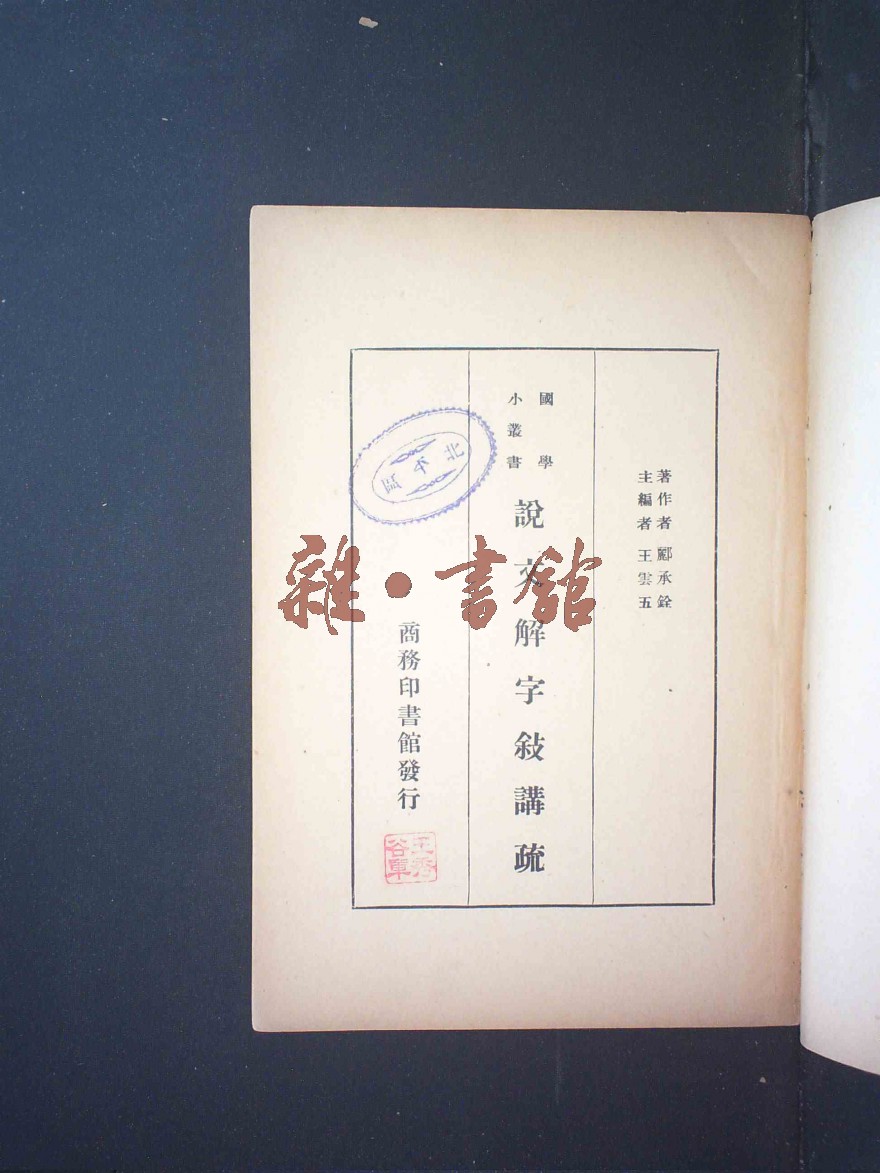 著作者 酈承銓
主編者 王雲五
國學
小叢書
說文解字敍講疏
商務印書館發行
北平
雜·書館